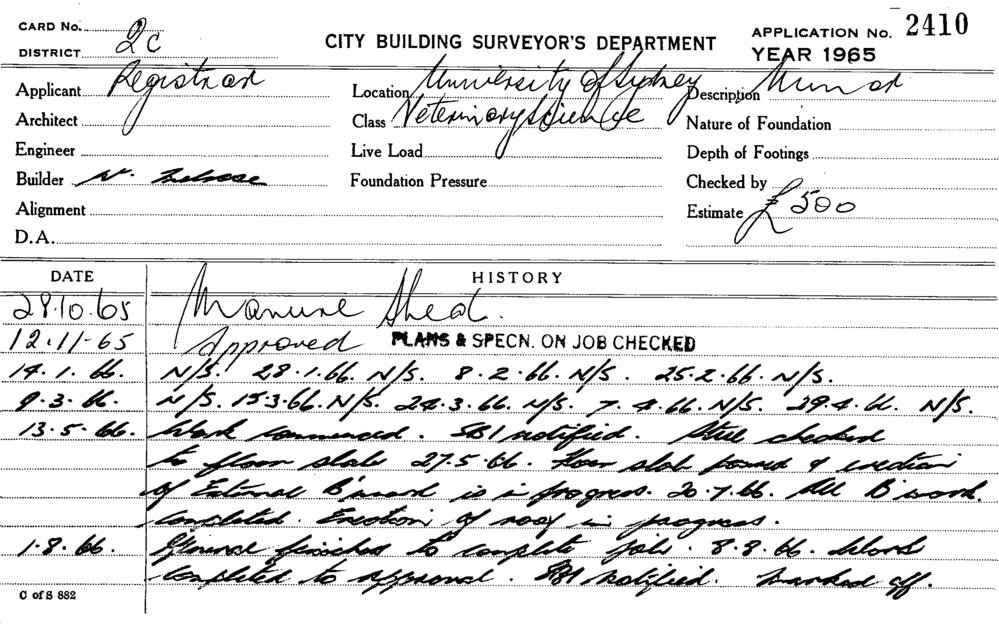 CARD No. 2c
DISTRICT
CITY BUILDING SURVEYOR'S DEPARTMENT
APPLICATION No. 2410
YEAR 1965
Applicant Registrar
Location University of Sydney
Description Minor
Architect
Class Veterinary Science
Nature of Foundation
Engineer
Live Load
Depth of Footings
Builder W.
Foundation Pressure
Checked by
Alignment
Estimate £500
D.A.
DATE HISTORY
28.10.65 Manure Shed.
12.11-65 Approved PLANS & SPECN. ON JOB CHECKED
14.1.66. N/S. 28.1.66. N/S. 8.2.66. N/S. 25.2.66. N/S.
9.3.66. N/S. 15.3.66. N/S. 24.3.66. N/S. 7.4.66. N/S. 29.4.66. N/S.
13.5.66. Work commenced. SBI notified. Steel checked
to floor slab 27.5.66. Floor slab poured & erection
of External B'work is in progress. 20.7.66. All B'work
completed. Erection of roof in progress.
1.8.66. General finishes to complete job. 8.8.66. Work
completed to approval. SBI notified. Marked off.
C of S 882